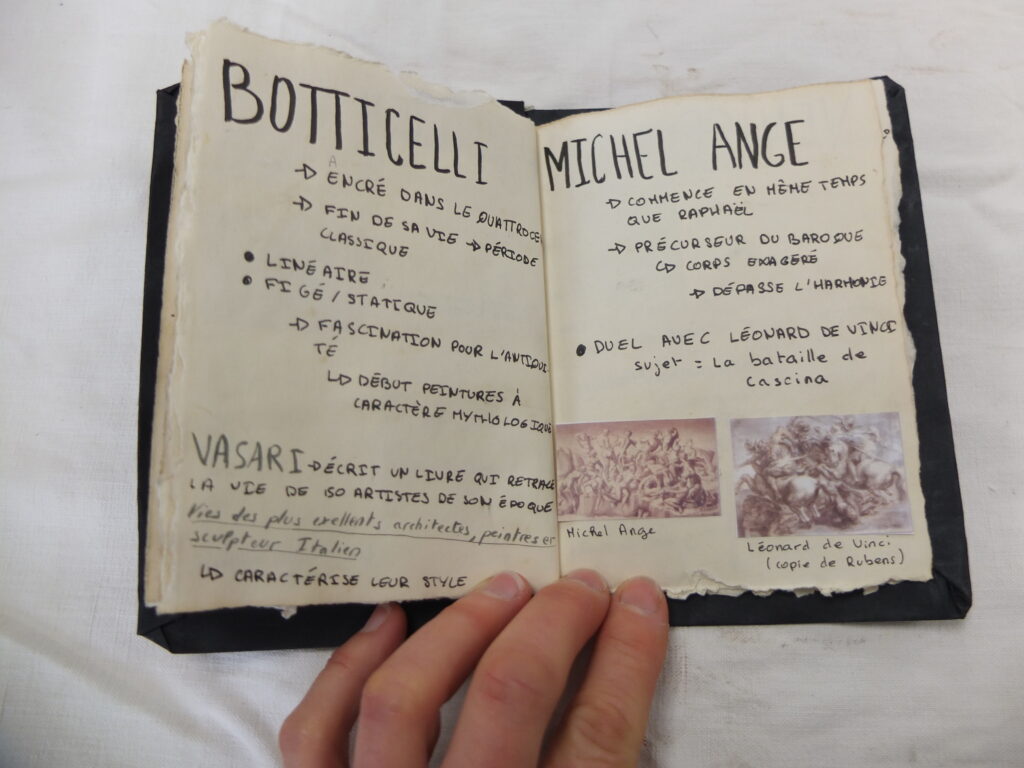 BOTTICELLI
A
→ ENCRÉ DANS LE QUATTROCEN
→ FIN DE SA VIE → PÉRIODE
CLASSIQUE
• LINÉAIRE
• FIGÉ / STATIQUE
→ FASCINATION POUR L'ANTIQUI
TÉ
↳ DÉBUT PEINTURES À
CARACTÈRE MYTHOLOGIQUE
VASARI → ÉCRIT UN LIVRE QUI RETRACE
LA VIE DE 150 ARTISTES DE SON ÉPOQUE
Vies des plus exellents architectes, peintres et
sculpteur Italien
↳ CARACTÉRISE LEUR STYLE
MICHEL ANGE
→ COMMENCE EN MÊME TEMPS
QUE RAPHAËL
→ PRÉCURSEUR DU BAROQUE
↳ CORPS EXAGÉRÉ
→ DÉPASSE L'HARMONIE
• DUEL AVEC LÉONARD DE VINCI
sujet = La bataille de
Cascina
Michel Ange
Léonard de Vinci
(copie de Rubens)